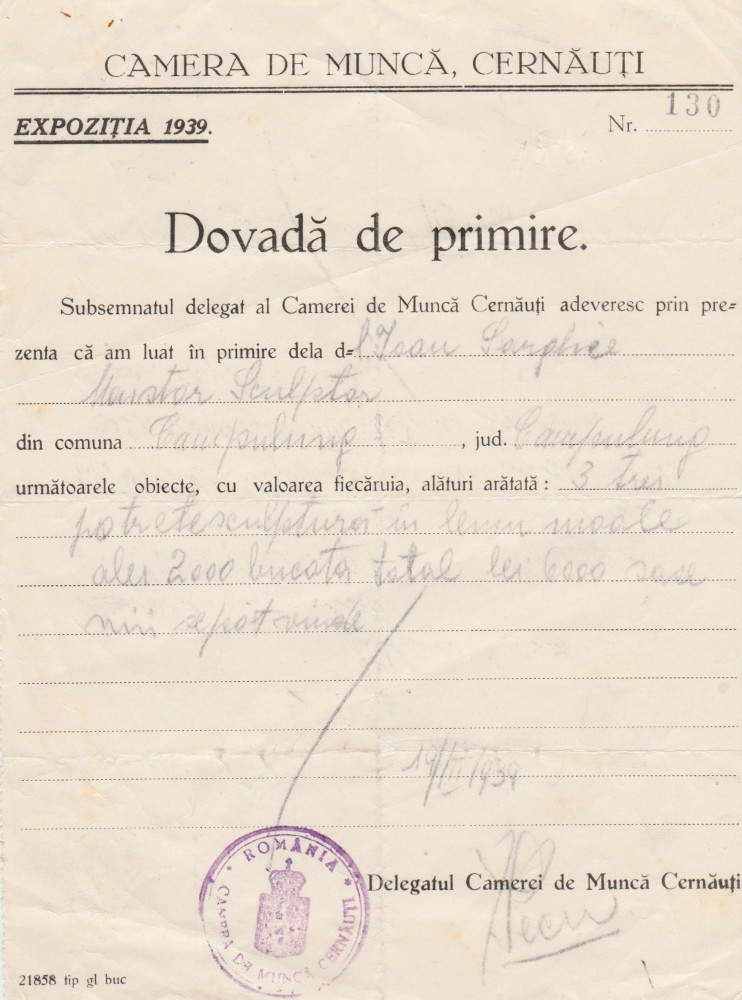 CAMERA DE MUNCĂ, CERNĂUȚI
EXPOZIȚIA 1939.
Nr. 130
Dovadă de primire.
Subsemnatul delegat al Camerei de Muncă Cernăuți adeveresc prin pre=
zenta că am luat în primire dela d=l Isau
Maistor Sculptor
din comuna Campulung, jud. Campulung
următoarele obiecte, cu valoarea fiecăruia, alături arătată: 3 trei
potrete sculptură în lemn moale
alei 2000 bucata total lei 6000 sase
mii se pot vinde
19/III/1939
ROMÂNIA
CAMERA DE MUNCĂ CERNĂUȚI
Delegatul Camerei de Muncă Cernăuți
21858 tip gl buc